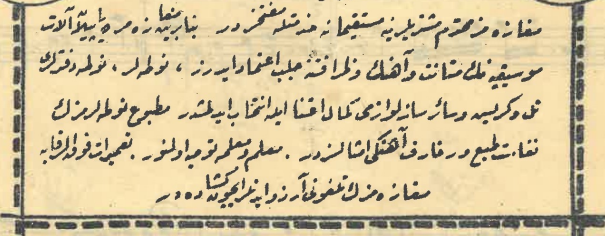 مغازه مز محترم مشتریلرینه مستقیمانه خدمتله مفتخردر بناءً علیه مغازه مزه پیانو آلات
موسیقیه نك متانت و آهنك و ظرافتنه جلب اعتماد ایدرز ، نوطه لر ، نوطه دفترلری
تل و کریس و سائر ساز لوازمی کمال اعتنا ایله انتخاب ایدلمشدر مطبوع نوطه لرمزك
نفاست طبع و ظرافت آهنكی امثالسزدر . معلم و معلمه توصیه اولنور . تعمیرات فوق الرقابه
مغازه مزك تلفونی آرزو ایدنلر ایچون كشاده در